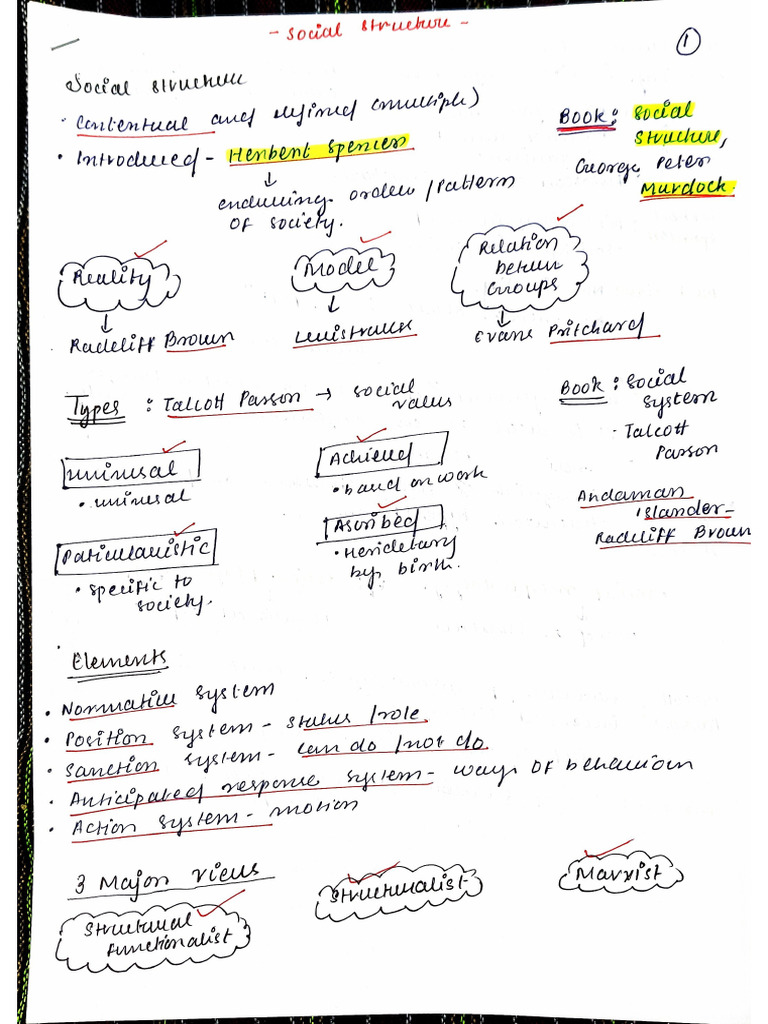 - Social Structure -
1
Social structure
• Contentual and defined (multiple)
• Introduced - Herbert Spencer
↓
enduring order / pattern
of society.
Book: Social
Structure,
George Peter
Murdock.
Reality
↓
Radcliff Brown
Model
↓
Levistrauss
Relation
betwen
Groups
↓
Evans Pritchard
Types : Talcott Parson → social
values
Book: Social
System
- Talcott
Parson
Universal
• universal
Achieved
• based on work
Paticularistic
• specific to
society.
Ascribed
• Heridetary
by birth.
Andaman
Islander -
Radcliff Brown
Elements
• Normative system
• Position system - status / role.
• Sanction system - can do / not do.
• Anticipated response system - ways of behaviour
• Action system - motion
3 Major views
Structural
functionalist
Structuralist
Marxist